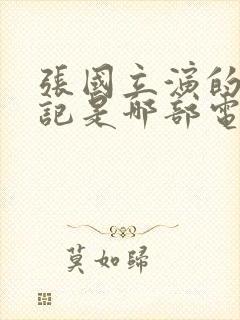 張國立演的
記是那部電
莫如歸